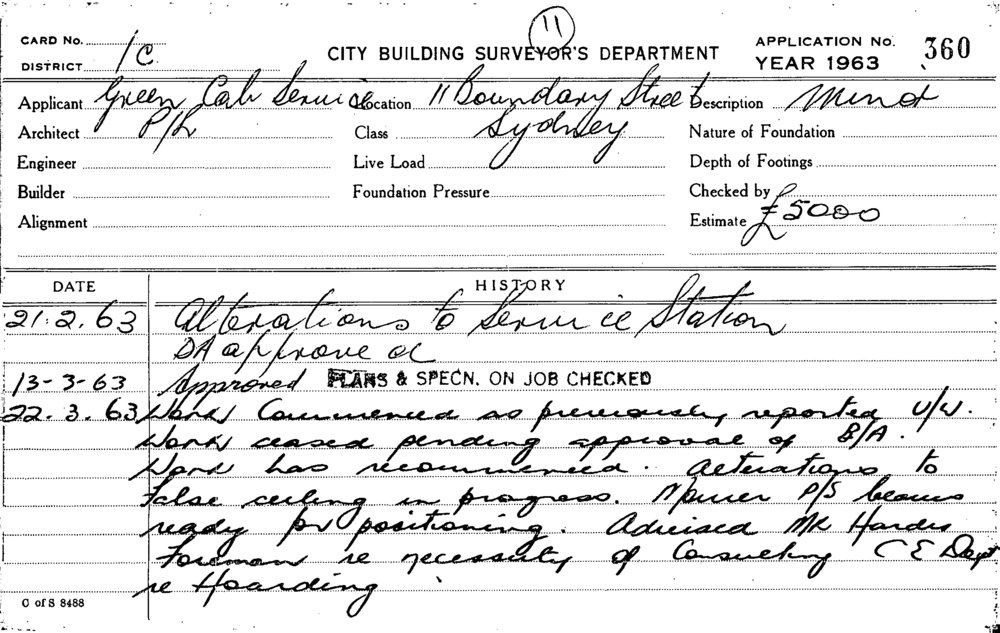 11
CARD No. 1C CITY BUILDING SURVEYOR'S DEPARTMENT APPLICATION No. 360
DISTRICT YEAR 1963
Applicant Green Cab Service Location 11 Boundary Street Description
Architect P/L Class Sydney Nature of Foundation
Engineer Live Load Depth of Footings
Builder Foundation Pressure Checked by
Alignment Estimate £5000
DATE HISTORY
21.2.63 Alterations to Service Station
DA approved
13-3-63 Approved PLANS & SPECN. ON JOB CHECKED
22.3.63 Work Commenced as previously reported U/W.
Work ceased pending approval of B/A.
Work has recommenced. Alterations to
False ceiling in progress. P/S beams
ready for positioning. Advised Mr
Foreman re necessity of Consulting C E Dept
re Hoarding
C of S 8488